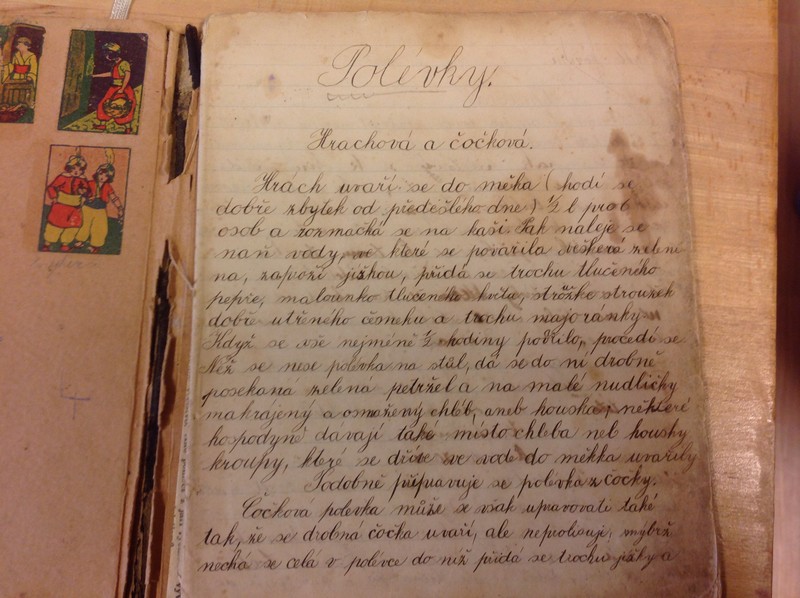 Polévky.
Hrachová a čočková.
Hrách uvaří se do měka (hodí se
dobře zbytek od předešlého dne) ½ l pro 6
osob a rozmačká se na kaši. Pak naleje se
naň vody, ve které se povařila veškerá zeleni
na, zapraží jíškou, přidá se trochu tlučeného
pepře, malounko tlučeného květu, stroužek
dobře utřeného česneku a trochu majoranky.
Když se vše nejméně ½ hodiny povařilo, procedí se.
Než se nese polévka na stůl, dá se do ní drobně
posekaná zelená petržel a na malé nudličky
nakrájený a osmažený chléb, aneb houska; některé
hospodyně dávají také místo chleba neb housky
kroupy, které se dříve ve vodě do měkka uvařily
Podobně připravuje se polévka z čočky.
Čočková polévka může se však upravovati také
tak, že se drobná čočka uvaří, ale neprolisuje, nýbrž
nechá se celá v polévce do níž přidá se trochu jíšky a